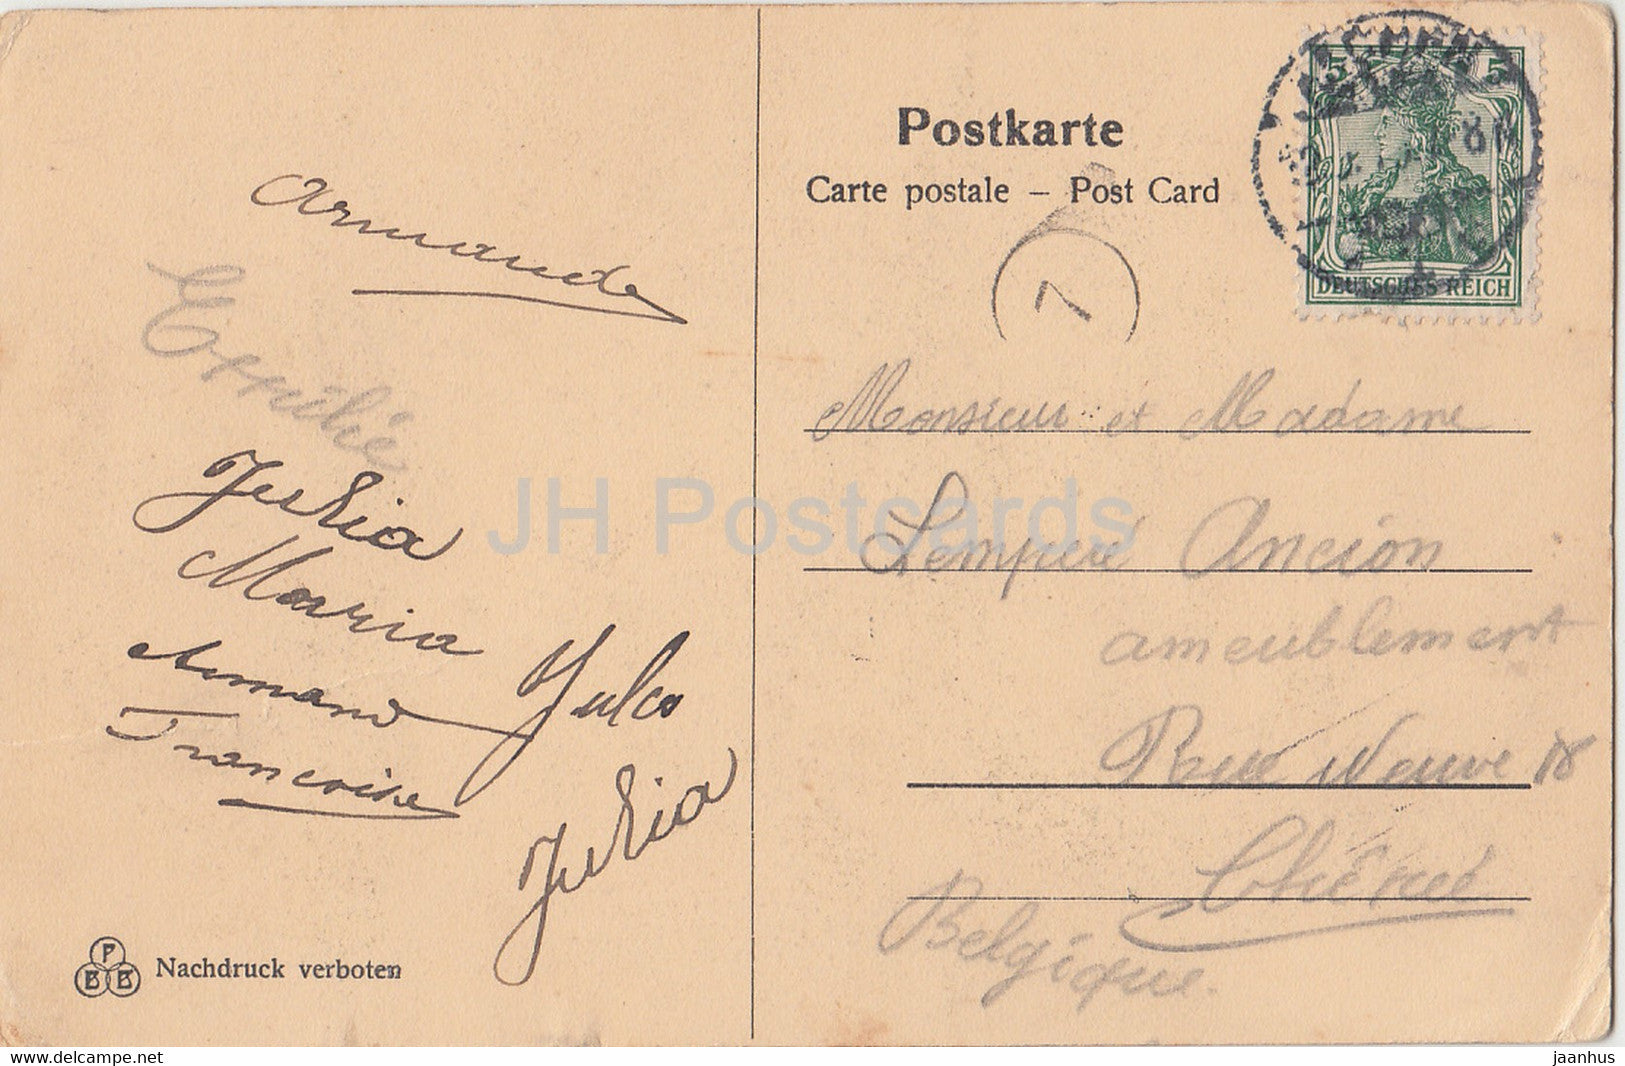 Postkarte
Carte postale – Post Card
5 5
DEUTSCHES REICH
7
Armande
Julia
Maria
Armand
Jules
Julia
Monsieur et Madame
Ancion
ameublement
Rue Neuve 18
Belgique.
P
B B
Nachdruck verboten
JH Postcards
www.delcampe.net
jaanhus